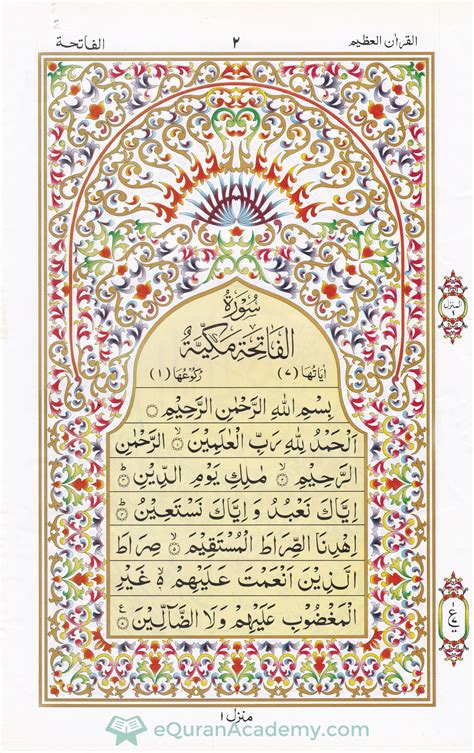 القرآن العظیم
۲
الفاتحة
سُوْرَةُ
الْفَاتِحَةِ مَكِّيَّةٌ
اٰيَاتُهَا (۷)
رُكُوْعُهَا (۱)
بِسْمِ اللهِ الرَّحْمٰنِ الرَّحِيْمِ
اَلْحَمْدُ لِلّٰهِ رَبِّ الْعٰلَمِيْنَ ۙ الرَّحْمٰنِ
الرَّحِيْمِ ۙ مٰلِكِ يَوْمِ الدِّيْنِ ؕ
اِيَّاكَ نَعْبُدُ وَ اِيَّاكَ نَسْتَعِيْنُ ؕ
اِهْدِنَا الصِّرَاطَ الْمُسْتَقِيْمَ ۙ صِرَاطَ
الَّذِيْنَ اَنْعَمْتَ عَلَيْهِمْ ۙ۬ غَيْرِ
الْمَغْضُوْبِ عَلَيْهِمْ وَلَا الضَّآلِّيْنَ
المنزل
۱
ع
منزل ۱
eQuranAcademy.com